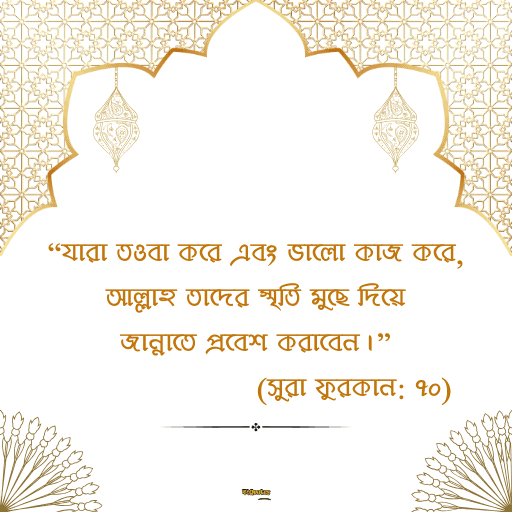 “যারা তওবা করে এবং ভালো কাজ করে,
আল্লাহ তাদের স্মৃতি মুছে দিয়ে
জান্নাতে প্রবেশ করাবেন।”
(সুরা ফুরকান: ৭০)